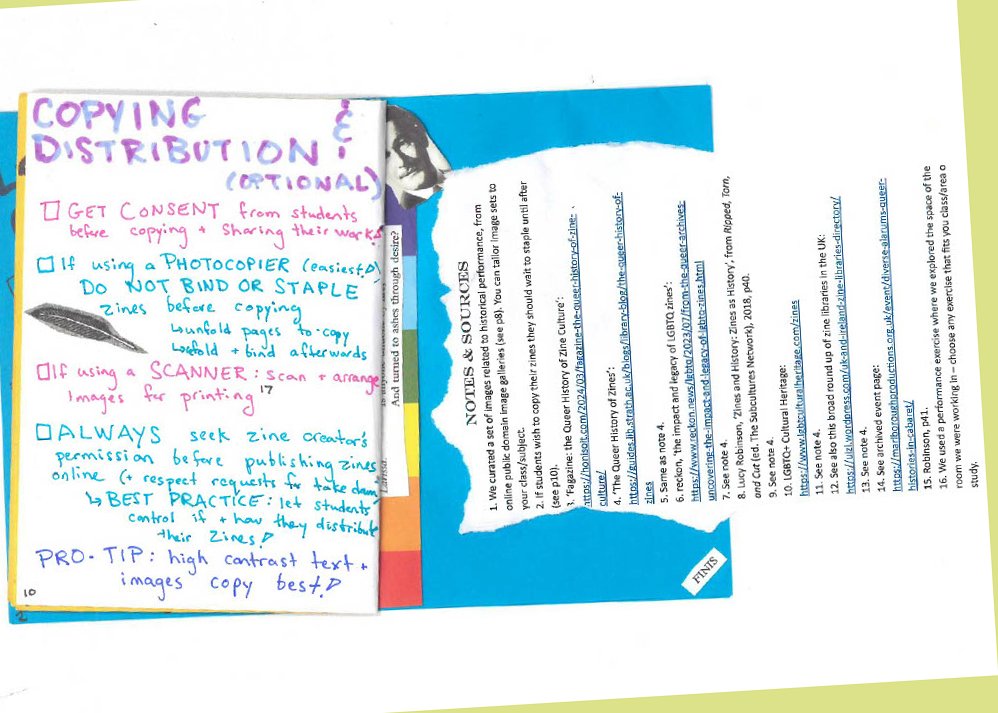 COPYING
& DISTRIBUTION!
(OPTIONAL)
GET CONSENT from students
before copying + sharing their work!
If using a PHOTOCOPIER (easiest!)
DO NOT BIND OR STAPLE
zines before copying
↳unfold pages to copy
↳refold + bind afterwards
If using a SCANNER: scan + arrange
images for printing 17
ALWAYS seek zine creator's
permission before publishing zines
online (+ respect requests for take down)
↳ BEST PRACTICE: let students
control if + how they distribute
their zines!
PRO-TIP: high contrast text +
images copy best!
10
2
And turned to ashes through desire?
NOTES & SOURCES
1. We curated a set of images related to historical performance, from
online public domain image galleries (see p8). You can tailor image sets to
your class/subject.
2. If students wish to copy their zines they should wait to staple until after
(see p10).
3. 'Fagazine: the Queer History of Zine Culture':
https://honisoit.com/2024/03/fagazine-the-queer-history-of-zine-
culture/
4. 'The Queer History of Zines':
https://guides.lib.strath.ac.uk/blogs/library-blog/the-queer-history-of-
zines
5. Same as note 4.
6. reckon, 'the impact and legacy of LGBTQ zines':
https://www.reckon.news/lgbtq/2023/07/from-the-queer-archives-
uncovering-the-impact-and-legacy-of-lgbtq-zines.html
7. See note 4.
8. Lucy Robinson, 'Zines and History: Zines as History', from Ripped, Torn,
and Cut (ed. The Subcultures Network), 2018, p40.
9. See note 4.
10. LGBTQ+ Cultural Heritage:
https://www.lgbtculturalheritage.com/zines
11. See note 4.
12. See also this broad round up of zine libraries in the UK:
https://ukzl.wordpress.com/uk-and-ireland-zine-libraries-directory/
13. See note 4.
14. See archived event page:
https://marlboroughproductions.org.uk/event/diverse-alarums-queer-
histories-in-cabaret/
15. Robinson, p41.
16. We used a performance exercise where we explored the space of the
room we were working in – choose any exercise that fits you class/area o
study.
FINIS